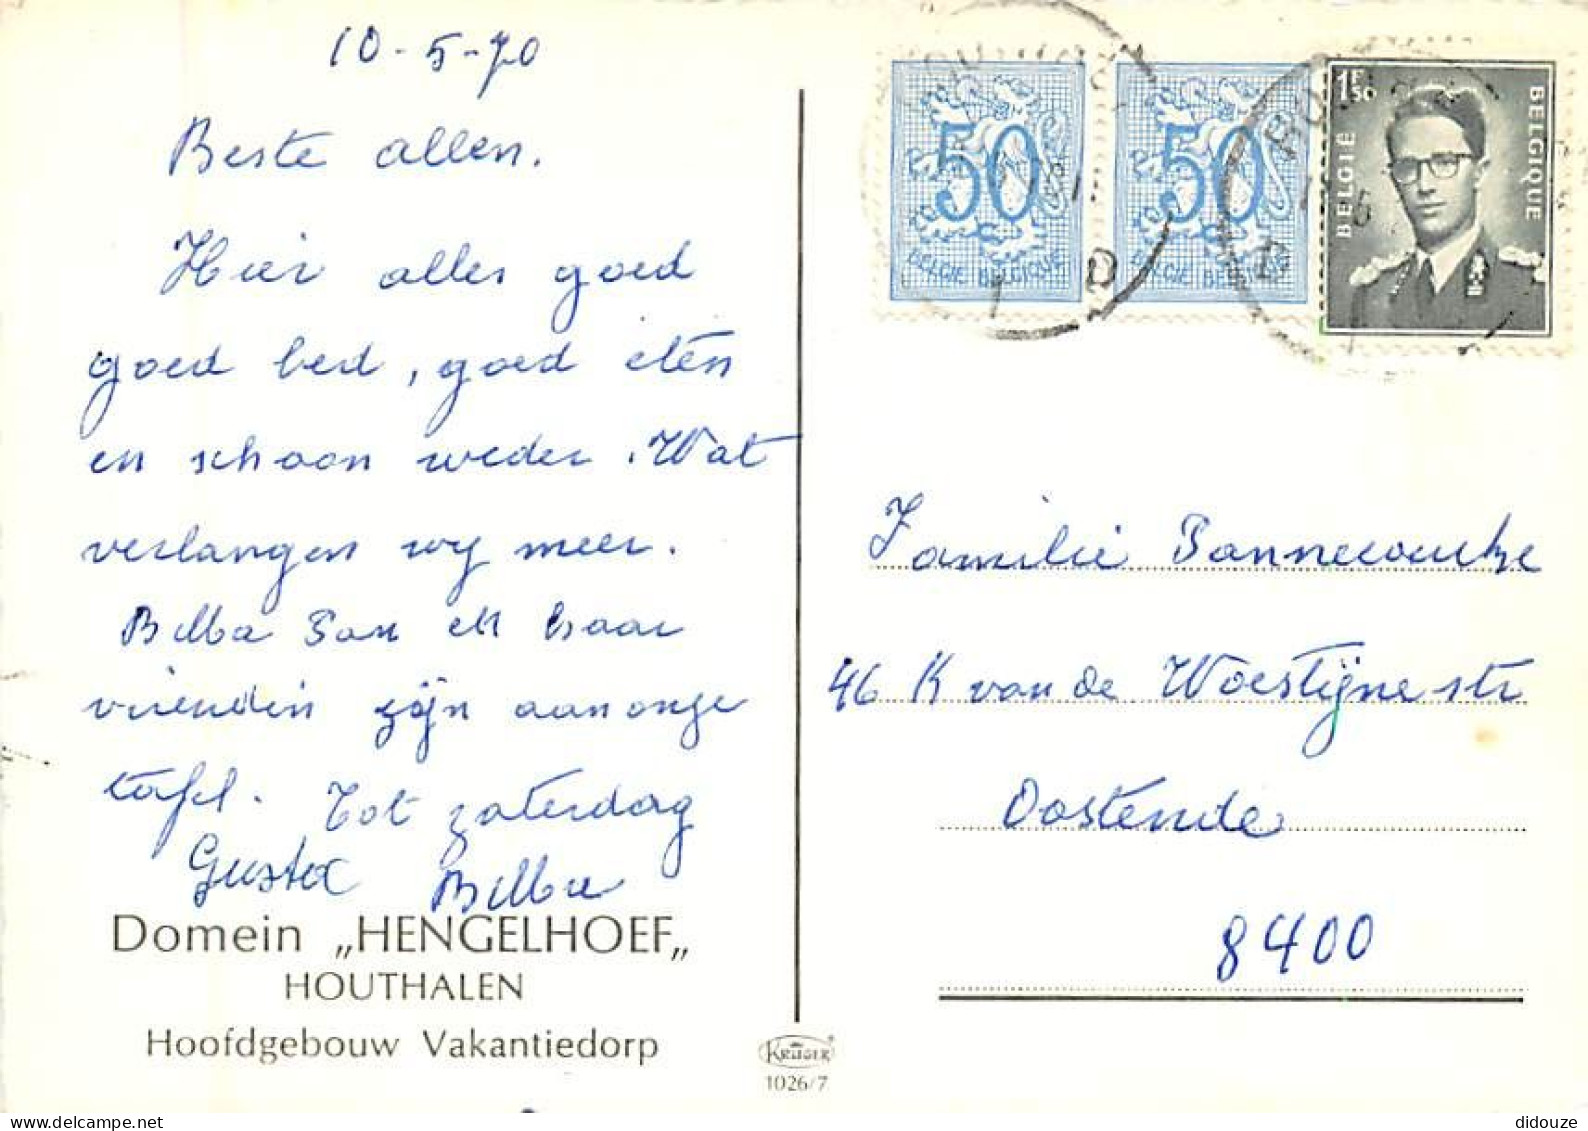 10-5-70
Beste allen.
Hier alles goed
goed bed, goed eten
en schoon weder. Wat
verlangen wy meer.
Bilba San en haar
vrienden zijn aan onze
tafel. Tot zaterdag
Gusta Bilba
Domein „HENGELHOEF„
HOUTHALEN
Hoofdgebouw Vakantiedorp
KRÜGER
1026/7
50
BELGIE BELGIQUE
50
BELGIE BELGIQUE
1F50
BELGIË
BELGIQUE
Familie Pannecoucke
46 K van de Woestijnestr
Oostende
8400
didouze